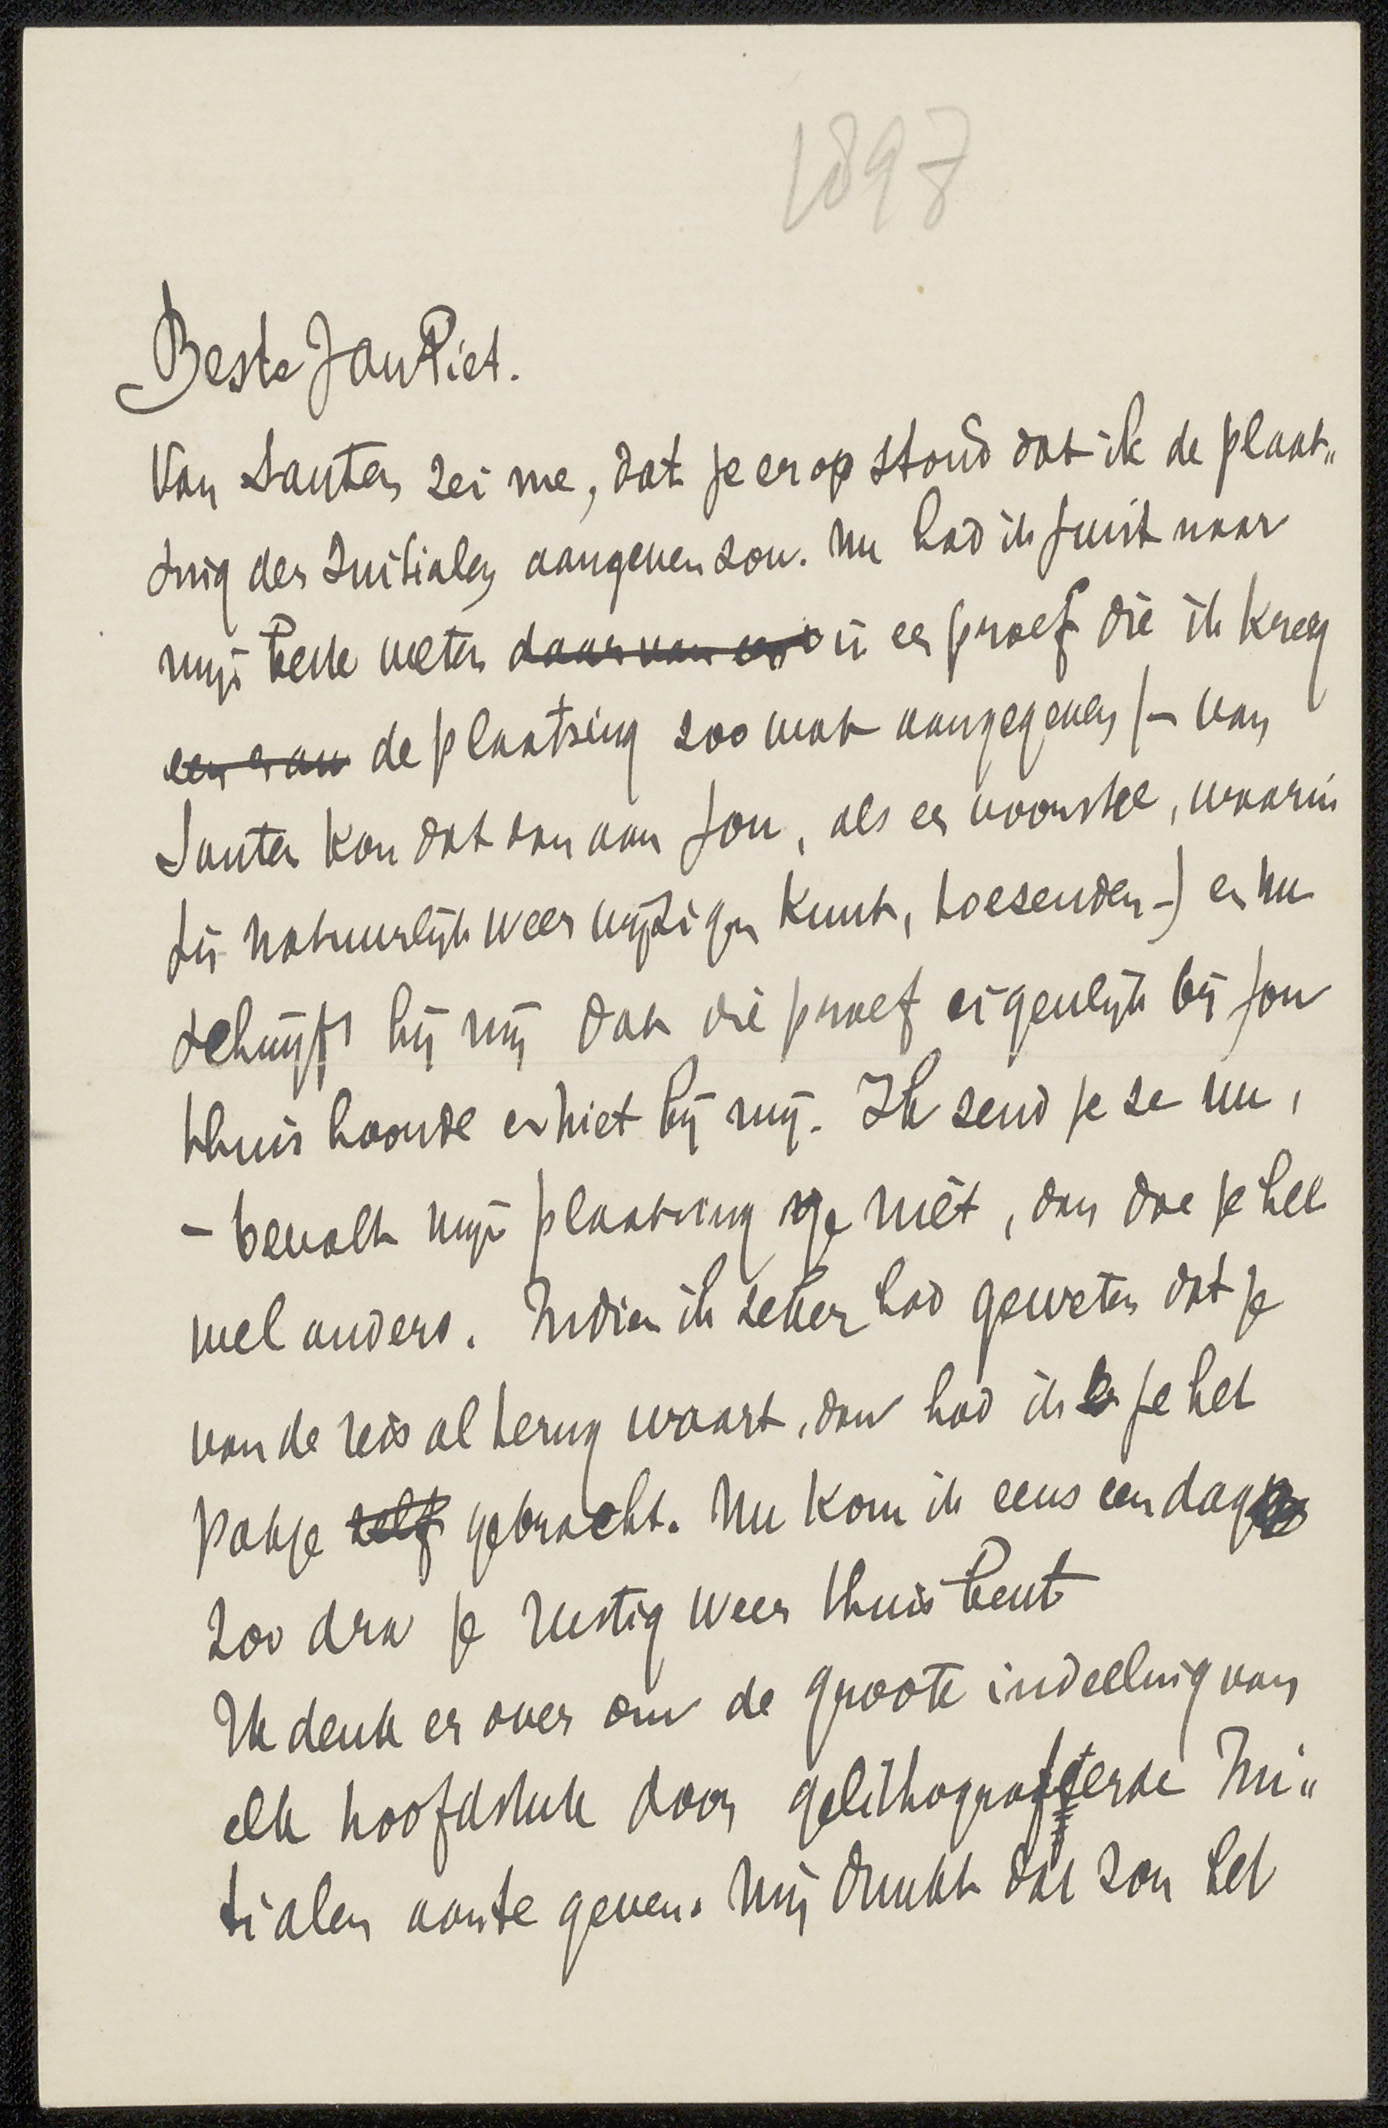 1897
Beste Jan Piet.
Van Santen zei me, dat je er op stond dat ik de plaat„
sing der Initialen aangeven zou. Nu had ik juist naar
mijn beste weten daarvan een in een proef die ik kreeg
de plaatsing zoo wat aangegeven (– van
Santen kon dat dan aan jou, als een voorstel, waarin
jij natuurlijk weer wijzigen kunt, toezenden –) en nu
schrijft hij mij dat die proef eigenlijk bij jou
thuis hoorde en niet bij mij. Ik zend je ze nu,
– bevalt mijn plaatsing je niet, dan doe je het
wel anders. Indien ik zeker had geweten dat je
van de reis al terug waart, dan had ik je het
pakje zelf gebracht. Nu kom ik eens een dag
zoo dra je rustig weer thuis bent
Ik denk er over om de groote indeeling van
elk hoofdstuk door gelithografeerde Ini„
tialen aan te geven. Mij dunkt dat zou het